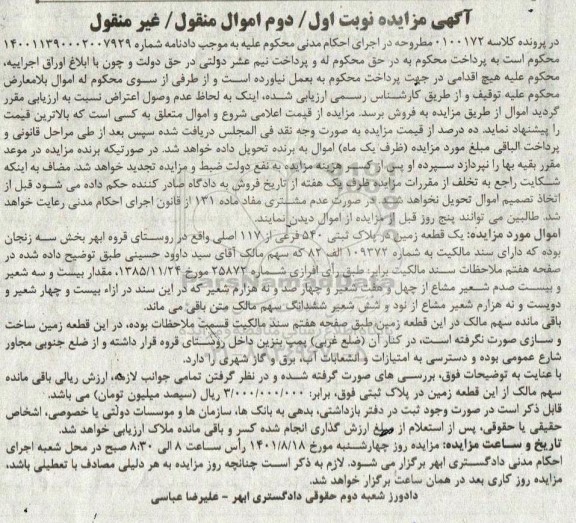 آگهی مزایده نوبت اول/ دوم اموال منقول/ غیر منقول
در پرونده کلاسه ۰۱۰۰۱۷۲ مطروحه در اجرای احکام مدنی محکوم علیه به موجب دادنامه شماره ۱۴۰۰۱۱۳۹۰۰۰۲۰۰۷۹۲۹
محکوم است به پرداخت محکوم به در حق محکوم له و پرداخت نیم عشر دولتی در حق دولت و چون با ابلاغ اوراق اجراییه،
محکوم علیه هیچ اقدامی در جهت پرداخت محکوم به بعمل نیاورده است و از طرفی از سوی محکوم له اموال بلامعارض
محکوم علیه توقیف و از طریق کارشناس رسمی ارزیابی شده، اینک به لحاظ عدم وصول اعتراض نسبت به ارزیابی مقرر
گردید اموال از طریق مزایده به فروش برسد. مزایده از قیمت اعلامی شروع و اموال متعلق به کسی است که بالاترین قیمت
را پیشنهاد نماید. ده درصد از قیمت مزایده به صورت وجه نقد فی المجلس دریافت شده سپس بعد از طی مراحل قانونی و
پرداخت الباقی مبلغ مورد مزایده (ظرف یک ماه) اموال به برنده تحویل داده خواهد شد. در صورتیکه برنده مزایده در موعد
مقرر بقیه بها را نپردازد سپرده او پس از کسر هزینه مزایده به نفع دولت ضبط و مزایده تجدید خواهد شد. مضاف به اینکه
شکایت راجع به تخلف از مقررات مزایده ظرف یک هفته از تاریخ فروش به دادگاه صادر کننده حکم داده می شود قبل از
اتخاذ تصمیم اموال تحویل نخواهد شد. در صورت عدم مشتری مفاد ماده ۱۳۱ از قانون اجرای احکام مدنی رعایت خواهد
شد. طالبین می توانند پنج روز قبل از مزایده از اموال دیدن نمایند.
اموال مورد مزایده: یک قطعه زمین در پلاک ثبتی ۵۴۰ فرعی از ۱۱۷ اصلی واقع در روستای قروه ابهر بخش سه زنجان
بوده که دارای سند مالکیت به شماره ۱۰۹۳۷۲ الف ۸۲ که سهم مالک آقای سید داوود حسینی طبق توضیح داده شده در
صفحه هفتم ملاحظات سند مالکیت برابر طبق رأی افرازی شماره ۲۵۸۷۲ مورخ ۱۳۸۵/۱۱/۲۴، مقدار بیست و سه شعیر
و بیست صدم شعیر مشاع از چهل و هفت شعیر و چهار صد و نه هزارم شعیر که در این سند در ازاء بیست و چهار شعیر و
دویست و نه هزارم شعیر مشاع از نود و شش شعیر ششدانگ سهم مالک متن باقی می ماند.
باقی مانده سهم مالک در این قطعه زمین طبق صفحه هفتم سند مالکیت قسمت ملاحظات بوده، در این قطعه زمین ساخت
و سازی صورت نگرفته است، در کنار آن (ضلع غربی) پمپ بنزین داخل روستای قروه قرار داشته و از ضلع جنوبی مجاور
شارع عمومی بوده و دسترسی به امتیازات و انشعابات آب، برق و گاز شهری را دارد.
با عنایت به توضیحات فوق، بررسی های صورت گرفته شده و در نظر گرفتن تمامی جوانب لازمه، ارزش ریالی باقی مانده
سهم مالک از این قطعه زمین در پلاک ثبتی فوق، برابر: ۳/۰۰۰/۰۰۰/۰۰۰ ریال (سیصد میلیون تومان) می باشد.
قابل ذکر است در صورت وجود ثبت در دفتر بازداشتی، بدهی به بانک ها، سازمان ها و موسسات دولتی یا خصوصی، اشخاص
حقیقی یا حقوقی، پس از استعلام از مبلغ ارزش گذاری انجام شده کسر و باقی مانده ملاک ارزیابی خواهد شد.
تاریخ و ساعت مزایده: مزایده روز چهارشنبه مورخ ۱۴۰۱/۸/۱۸ رأس ساعت ۸ الی ۸:۳۰ صبح در محل شعبه اجرای
احکام مدنی دادگستری ابهر برگزار می شود. لازم به ذکر است چنانچه روز مزایده به هر دلیلی مصادف با تعطیلی باشد،
مزایده روز کاری بعد در همان ساعت برگزار خواهد شد.
دادورز شعبه دوم حقوقی دادگستری ابهر - علیرضا عباسی